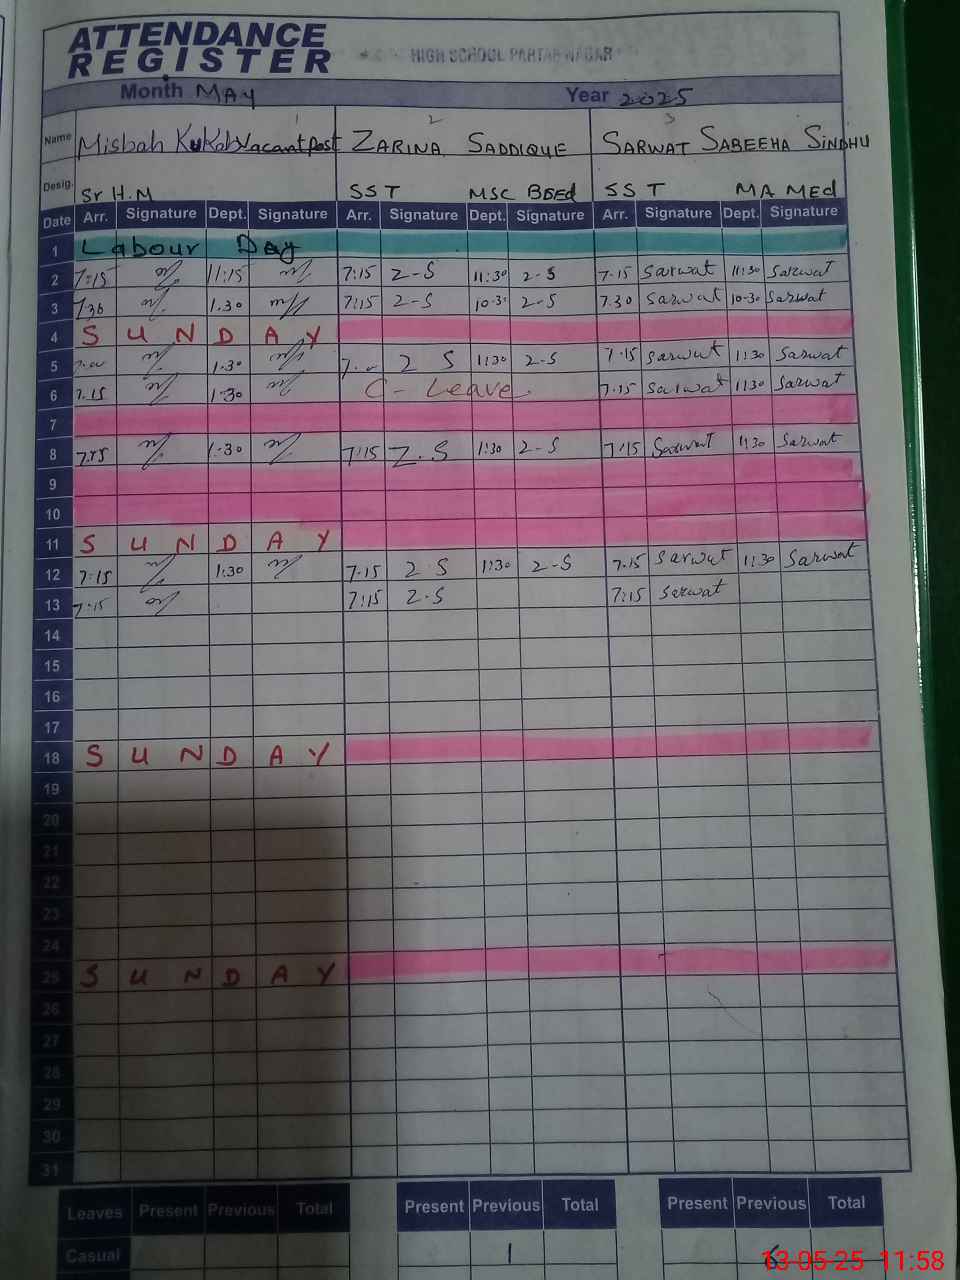 ATTENDANCE
REGISTER
HIGH SCHOOL PARTAB NAGAR
Month MAY Year 2025
1 2 3
Name Misbah Kukab Vacant Post ZARINA SADDIQUE SARWAT SABEEHA SINDHU
Desig. Sr H.M SST MSC BSEd SST MA MEd
Date Arr. Signature Dept. Signature Arr. Signature Dept. Signature Arr. Signature Dept. Signature
1 Labour Day
2 7:15 11:15 7:15 Z-S 11:30 Z-S 7.15 Sarwat 11:30 Sarwat
3 7.30 1.30 7:15 Z-S 10.30 Z-S 7.30 Sarwat 10-30 Sarwat
4 SUNDAY
5 1.30 Z S 1:30 Z-S 7.15 Sarwat 11:30 Sarwat
6 7.15 1:30 C-Leave 7.15 Sarwat 1130 Sarwat
7
8 7.15 1.30 7:15 Z.S 1:30 Z-S 7:15 Sarwat 1:30 Sarwat
9
10
11 SUNDAY
12 7:15 1:30 7.15 Z S 1:30 Z-S 7.15 Sarwat 1:30 Sarwat
13 7:15 7:15 Z-S 7:15 Sarwat
14
15
16
17
18 SUNDAY
19
20
21
22
23
24
25 SUNDAY
26
27
28
29
30
31
Leaves Present Previous Total Present Previous Total Present Previous Total
Casual 1
13-05-25 11:58